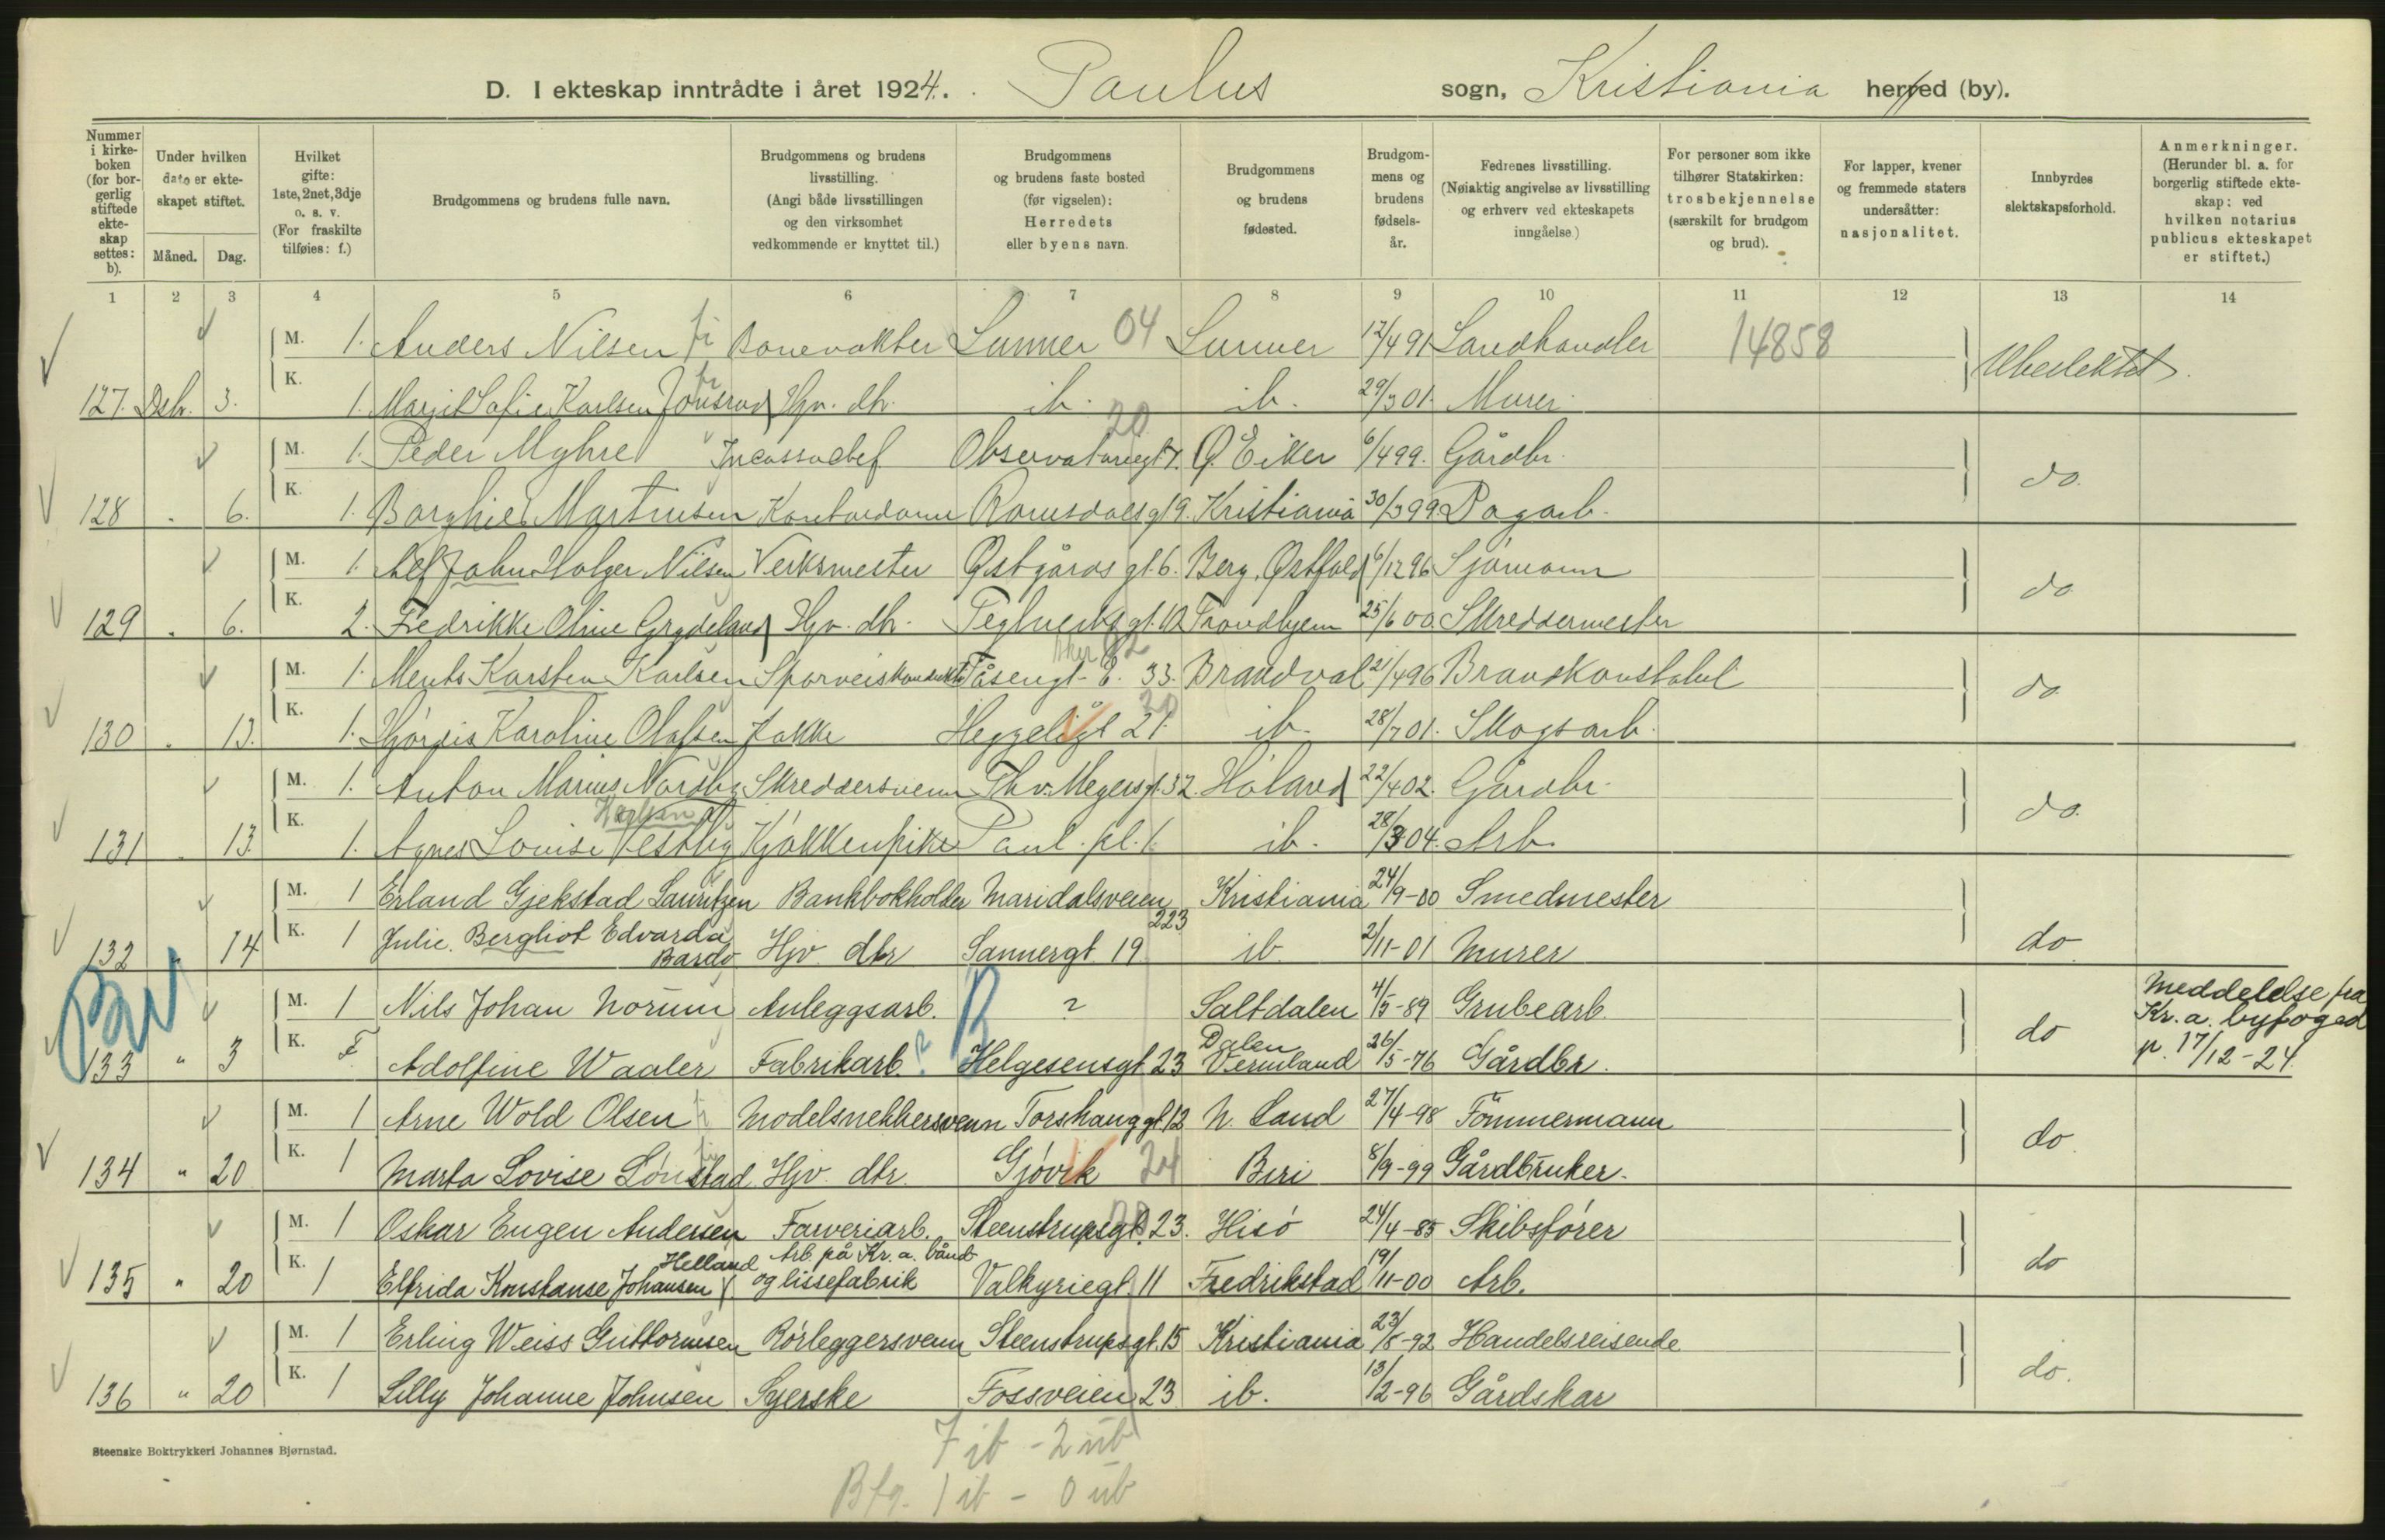 D. I ekteskap inntrådte i året 1924. Paulus sogn, Kristiania herred (by).
Nummer i kirkeboken (for borgerlig stiftede ekteskap settes: b).
Under hvilken dato er ekteskapet stiftet.
Måned. Dag.
Hvilket gifte: 1ste, 2net, 3dje o. s. v. (For fraskilte tilføies: f.)
Brudgommens og brudens fulle navn.
Brudgommens og brudens livsstilling. (Angi både livsstillingen og den virksomhet vedkommende er knyttet til.)
Brudgommens og brudens faste bosted (før vigselen): Herredets eller byens navn.
Brudgommens og brudens fødested.
Brudgommens og brudens fødselsår.
Fedrenes livsstilling. (Nøiaktig angivelse av livsstilling og erhverv ved ekteskapets inngåelse.)
For personer som ikke tilhører Statskirken: trosbekjennelse (særskilt for brudgom og brud).
For lapper, kvener og fremmede staters undersåtter: nasjonalitet.
Innbyrdes slektskapsforhold.
Anmerkninger. (Herunder bl. a. for borgerlig stiftede ekteskap: ved hvilken notarius publicus ekteskapet er stiftet.)
1 2 3 4 5 6 7 8 9 10 11 12 13 14
M. 1. Anders Nilsen Banevakter Lunner 04 Lunner 12/4 91 Landhandler 14858
127. Dsbr. 3. K. 1. Margit Sofie Karlsen Jonsrud Hjv. dtr. ib. ib. 29/3 01. Murer. Ubeslektet.
M. 1. Peder Myhre Incassochef Observatoriegt 7. Ø. Eiker 6/4 99. Gårdbr. 20
128 . 6. K. 1. Borghild Martinsen Kontordame Romsdalsgt 9. Kristiania 30/3 99 Dagarb. do.
M. 1. Alf John Holger Nilsen Verksmester Østgårds gt. 6. Berg, Østfold 6/12 96 Sjømann
129 . 6. K. 2. Fredrikke Oline Grydeland Hjv. dtr. Teglverksgt. 12 Trondhjem 25/6 00. Skreddermester do
M. 1. Ments Karsten Karlsen Sporveiskonduktør Tåsengt. 33. Brandval 21/4 96 Brandkonstabel
130 . 13. K. 1. Hjørdis Karoline Olafsen Kokke Heggeligt 21. ib. 28/7 01. Skogsarb. do
M. 1. Anton Marius Nordby Skreddersvenn Th. v. Meyersgt. 32. Høland 22/4 02. Gårdbr.
Karlsen
131 . 13. K. 1. Agnes Louise Vestby Kjøkkenpike Paul. pl. 1. ib. 28/3 04. Arb. do.
M. 1 Erland Gjekstad Lauritzen Bankbokholder Maridalsveien 223 Kristiania 24/9-00 Smedmester
132 " 14 K. 1 Julie Bergliot Edvarda Bardo Hjv. dtr Sannergt 19 ib. 2/11-01 Murer do.
M. 1 Nils Johan Norum Anleggsarb. ? Saltdalen 4/5-89 Grubearb. Meddelelse fra Kr.a. byfoged p. 17/12-24.
133 " 3 K. F. Adolfine Waaler Fabrikarb. ? Helgesensgt 23 Dalen Vermland 26/5-76 Gårdbr. do
M. 1 Arne Wold Olsen Modelsnekkersvenn Torshauggt. 12 N. Land 27/4-98 Tømmermann
134 " 20 K. 1 Marta Lovise Lønstad Hjv. dtr. Gjøvik 24 Biri 8/9-99 Gårdbruker. do.
M. 1 Oskar Eugen Andersen Farveriarb. Steenstrupsgt. 23. Hisø 24/4-85 Skibsfører
135 " 20 K. 1 Elfrida Konstanse Johansen Helland Arb. på Kr.a. bånd- og lissefabrik Valkyriegt. 11 Fredrikstad 19/11-00 Arb. do
M. 1 Erling Weiss Guttormsen Rørleggersvenn Steenstrupsgt. 15 Kristiania 23/8-92 Handelsreisende
136 " 20 K. 1 Lilly Johanne Johnsen Syerske Fossveien 23 ib. 13/2-96 Gårdskar do.
Steenske Boktrykkeri Johannes Bjørnstad.
7 ib - 2 ub
Bfg. 1 ib - 0 ub